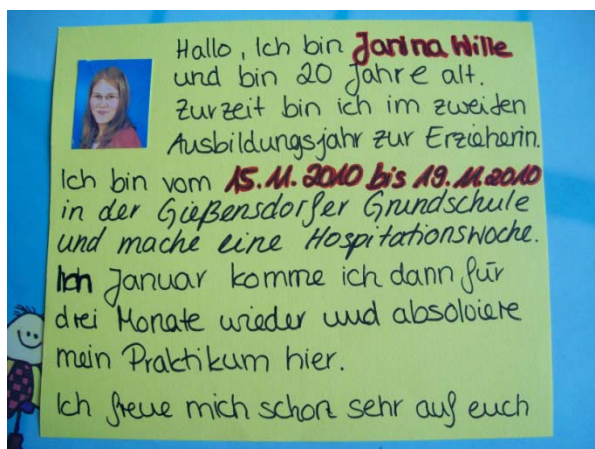 Hallo, Ich bin Janina Wille
und bin 20 Jahre alt.
Zurzeit bin ich im zweiten
Ausbildungsjahr zur Erzieherin.
Ich bin vom 15.11.2010 bis 19.11.2010
in der Gießensdorfer Grundschule
und mache eine Hospitationswoche.
Im Januar komme ich dann für
drei Monate wieder und absolviere
mein Praktikum hier.
Ich freue mich schon sehr auf euch